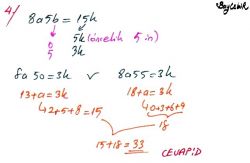 4/ 8a5b = 15k
5k (öncelik 5 in)
0
5 3k
8a50 = 3k v 8a55 = 3k
13+a = 3k 18+a = 3k
2+5+8 = 15 0+3+6+9
18
15+18 = 33 CEVAP: D